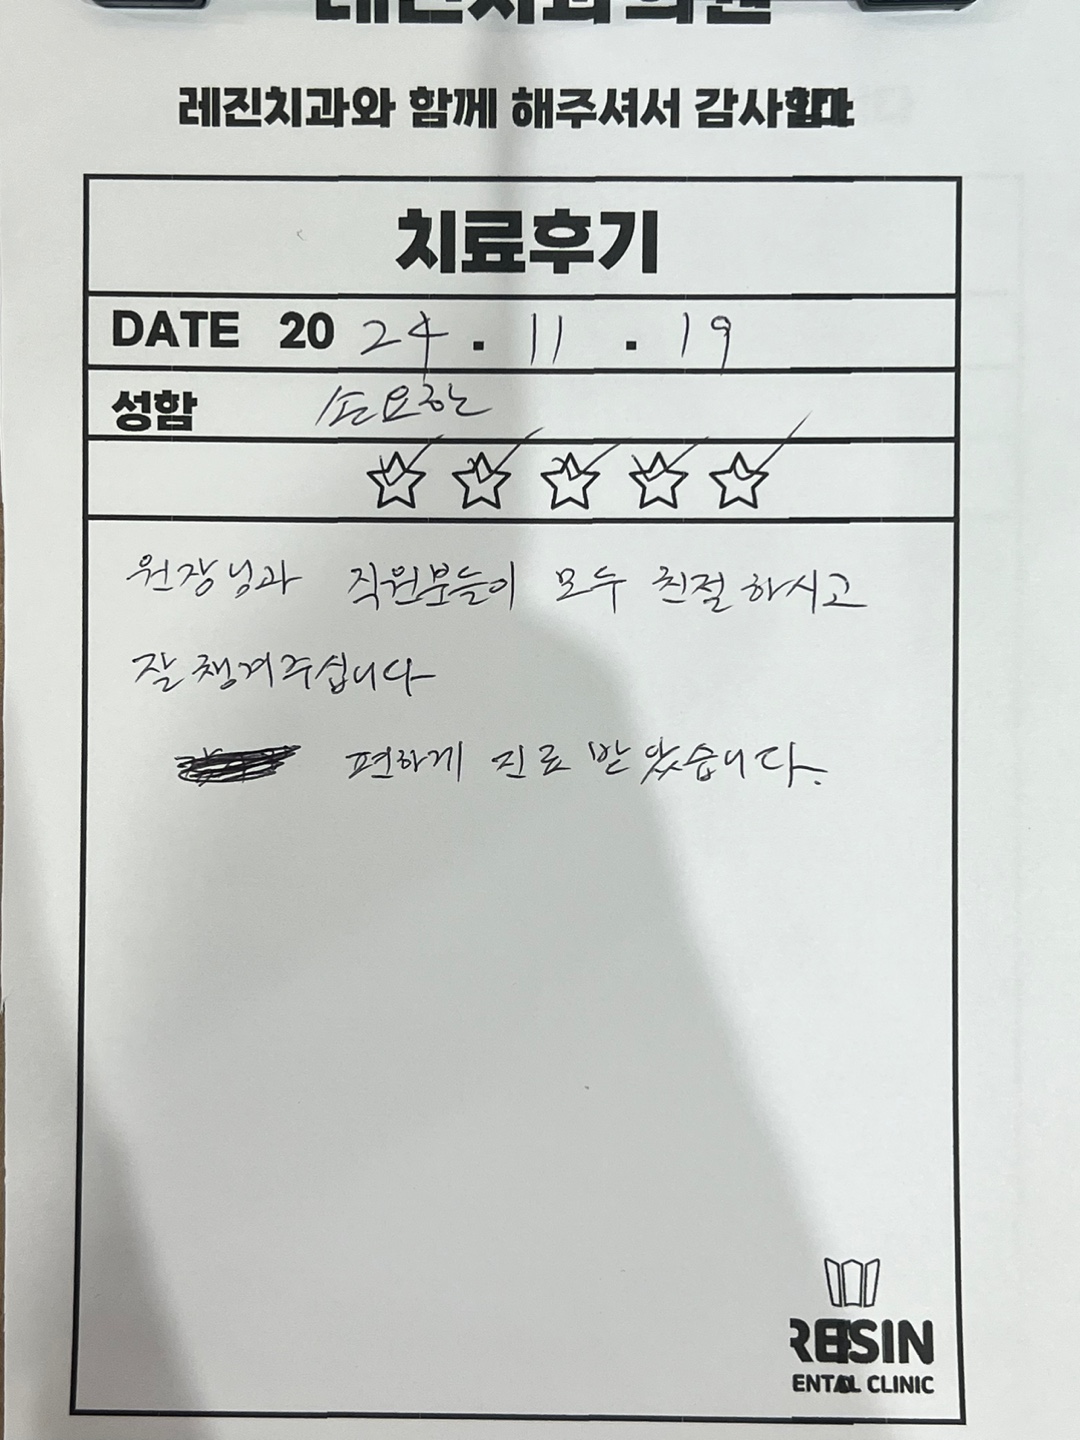 레진치과의원
레진치과와 함께 해주셔서 감사합니다
치료후기
DATE 20 24 . 11 . 19
성함 손요한
원장님과 직원분들이 모두 친절하시고
잘 챙겨주십니다
편하게 진료 받았습니다.
RESIN
ENTAL CLINIC